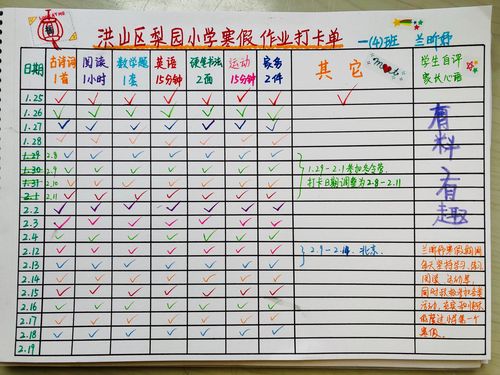 洪山区梨园小学寒假作业打卡单
一(4)班 兰昕妤
日期 古诗词1首 阅读1小时 数学题1套 英语15分钟 硬笔书法2面 运动15分钟 家务2件 其它 学生自评 家长心语
1.25
1.26
1.27
1.28
1.29 2.8
1.30 2.9
1.31 2.10
2.1 2.11
1.29-2.1参加冬令营,
打卡日期调整为2.8-2.11
2.2
2.3
2.4
2.12
2.13
2.9-2.14. 北京
2.14
2.15
2.16
2.17
2.18
2.19
有料,有趣
兰昕妤寒假期间
每天坚持学习、练习
阅读、运动等,
同时积极参加冬令
活动,充实和愉快
地度过小学第一个
寒假.